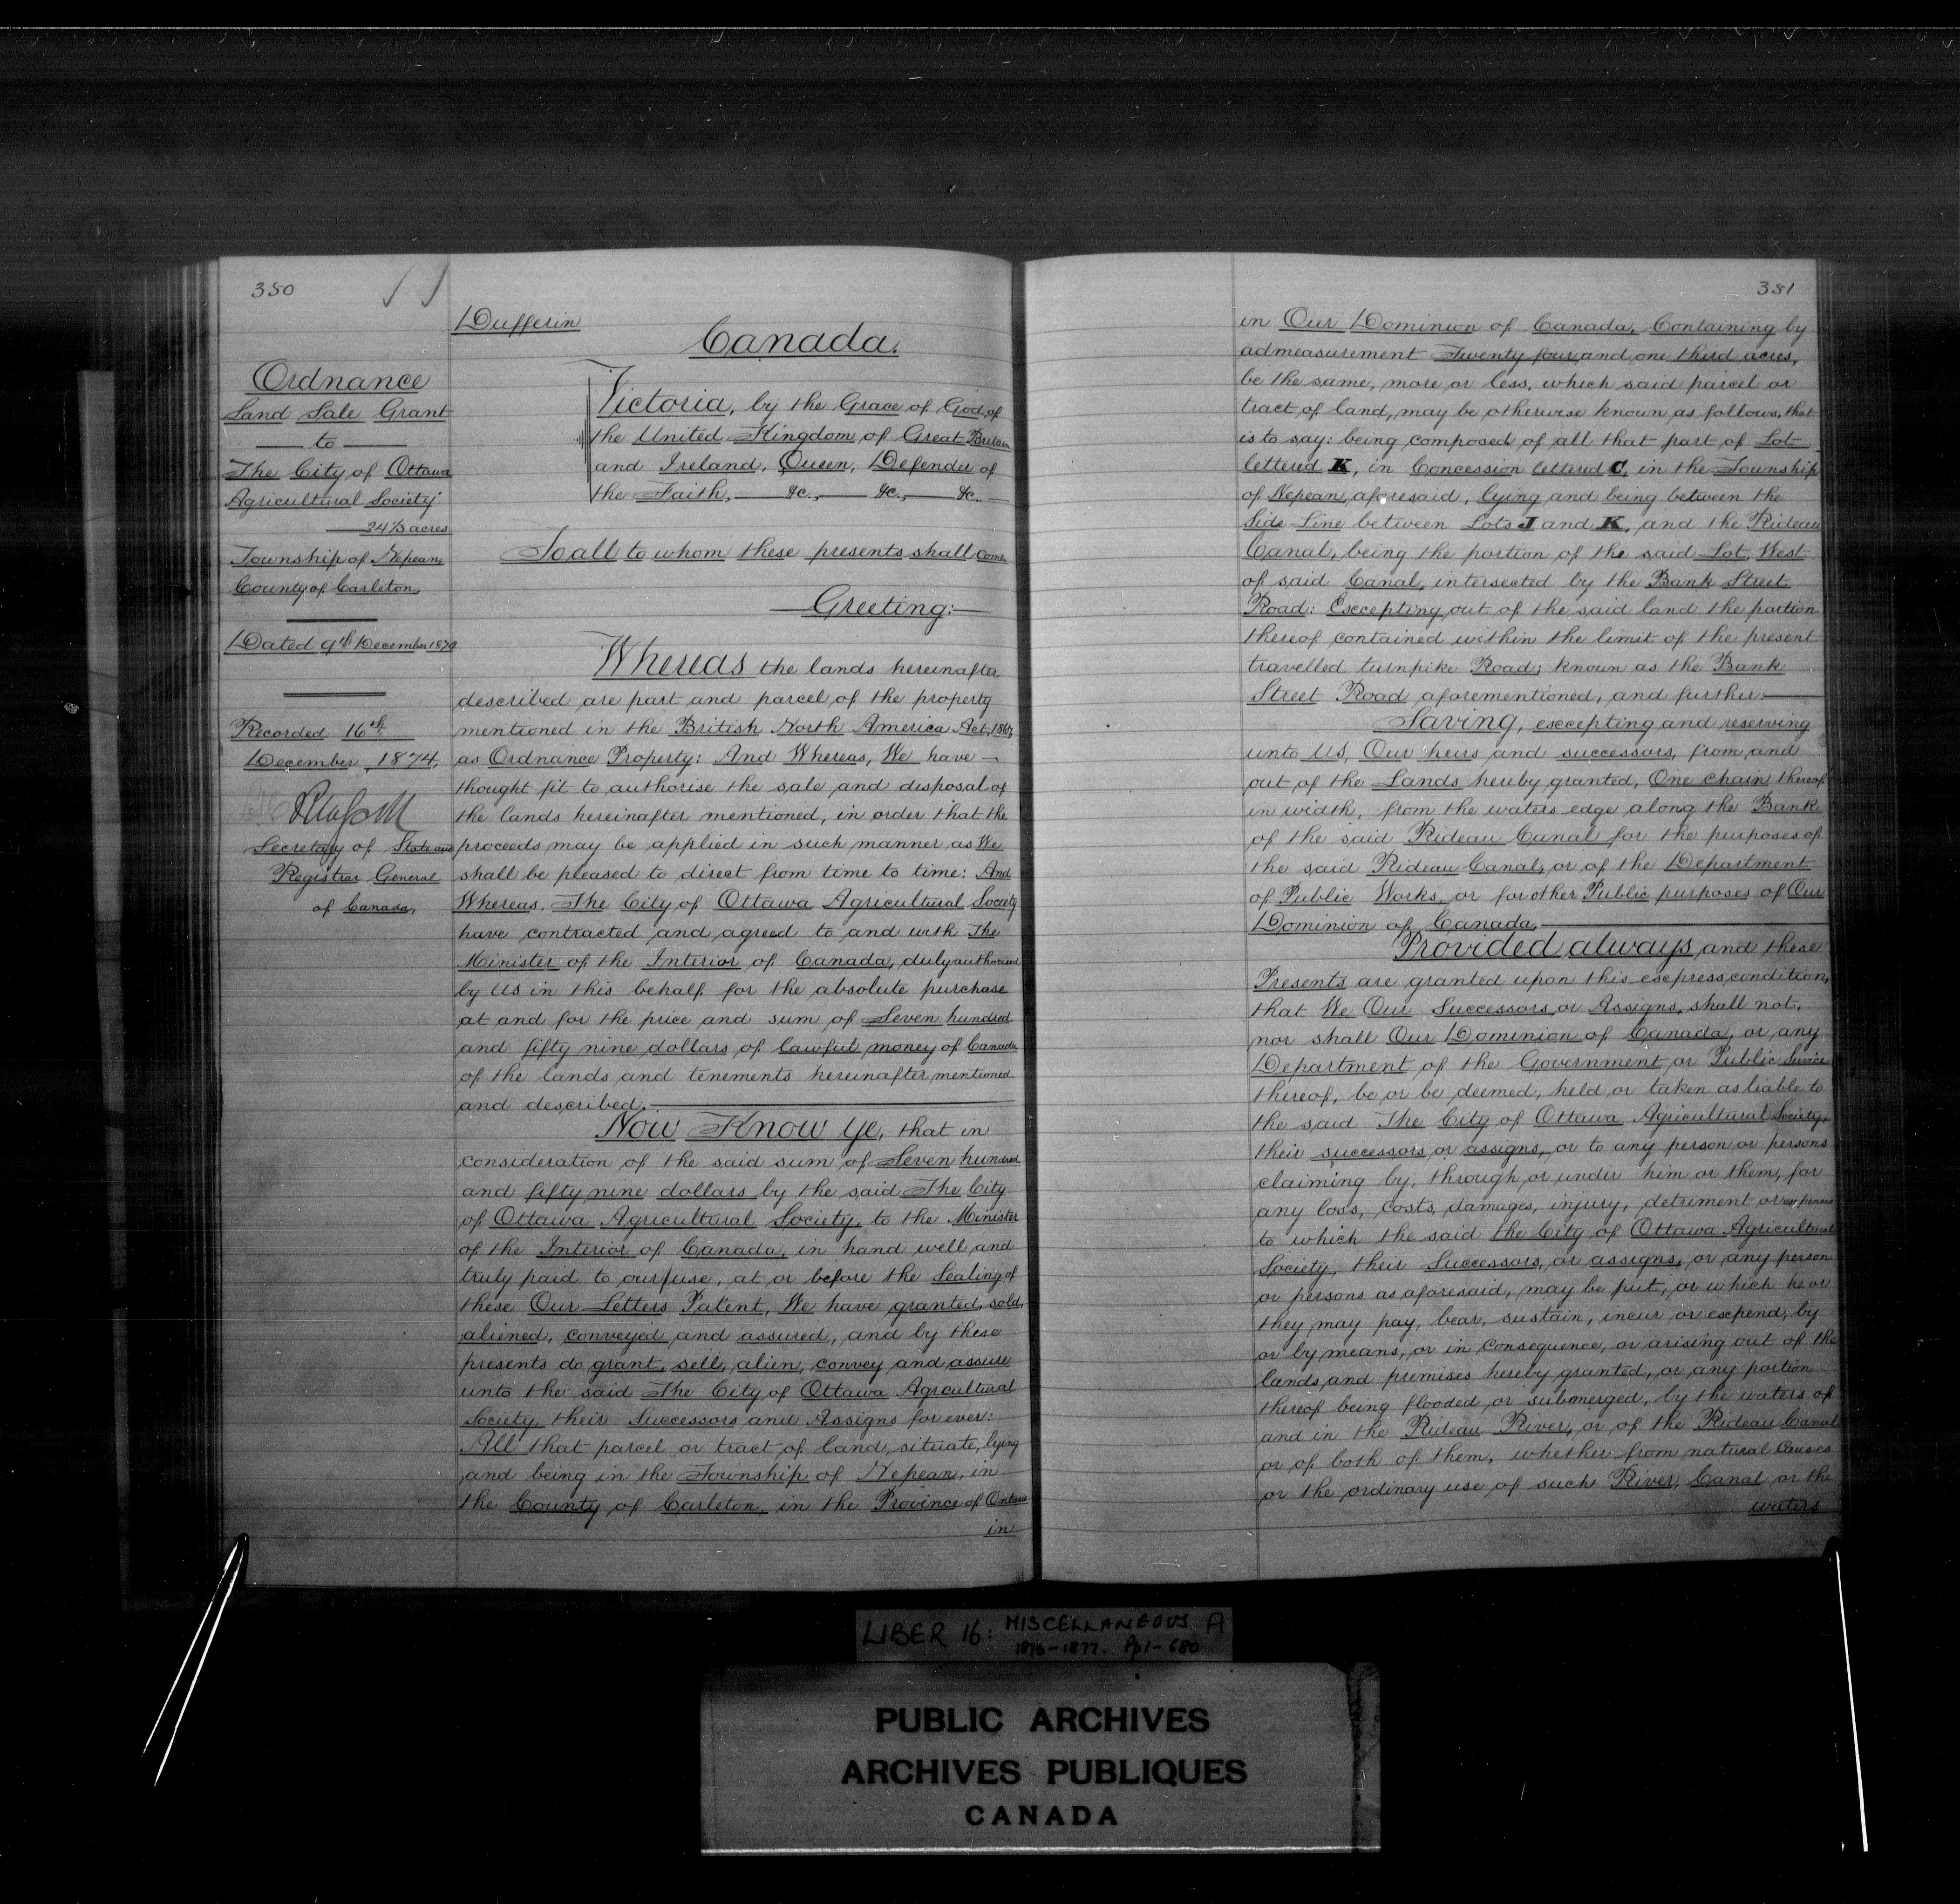 350
Ordnance
Land Sale Grant
to
The City of Ottawa
Agricultural Society
24 1/3 acres
Township of Nepean,
County of Carleton,
Dated 9th December 1874
Recorded 16th
December, 1874,
Secretary of State and
Registrar General
of Canada,
Dufferin
Canada.
Victoria, by the Grace of God, of
the United Kingdom of Great Britain
and Ireland, Queen, Defender of
the Faith, &c., &c., &c.
To all to whom these presents shall come
Greeting:
Whereas the lands hereinafter
described are part and parcel of the property
mentioned in the British North America Act, 1867,
as Ordnance Property: And Whereas, We have
thought fit to authorise the sale and disposal of
the lands hereinafter mentioned, in order that the
proceeds may be applied in such manner as We
shall be pleased to direct from time to time: And
Whereas, The City of Ottawa Agricultural Society
have contracted and agreed to and with the
Minister of the Interior of Canada, duly authorised
by Us in this behalf, for the absolute purchase
at and for the price and sum of Seven hundred
and fifty nine dollars of lawful money of Canada
of the lands and tenements hereinafter mentioned
and described.
Now Know Ye, that in
consideration of the said sum of Seven hundred
and fifty nine dollars by the said The City
of Ottawa Agricultural Society, to the Minister
of the Interior of Canada, in hand well and
truly paid to our use, at or before the Sealing of
these Our Letters Patent, We have granted, sold,
aliened, conveyed and assured, and by these
presents do grant, sell, alien, convey and assure
unto the said The City of Ottawa Agricultural
Society, their Successors and Assigns for ever:
All that parcel or tract of land, situate, lying
and being in the Township of Nepean, in
the County of Carleton, in the Province of Ontario
in
351
in Our Dominion of Canada, Containing by
admeasurement Twenty four and one third acres,
be the same, more or less, which said parcel or
tract of land, may be otherwise known as follows, that
is to say: being composed of all that part of Lot
lettered K, in Concession lettered C, in the Township
of Nepean, aforesaid, lying and being between the
Side Line between Lots J and K, and the Rideau
Canal, being the portion of the said Lot, West
of said Canal, intersected by the Bank Street
Road: Excepting out of the said land the portion
thereof contained within the limit of the present
travelled turnpike Road; known as the Bank
Street Road aforementioned, and further:
Saving, excepting and reserving
unto Us, Our heirs and successors, from and
out of the Lands hereby granted, One chain thereof
in width, from the waters edge along the Bank
of the said Rideau Canal for the purposes of
the said Rideau Canal, or of the Department
of Public Works, or for other Public purposes of Our
Dominion of Canada,
Provided always and these
Presents are granted upon this express condition,
that We Our Successors or Assigns, shall not,
nor shall Our Dominion of Canada, or any
Department of the Government or Public Service
thereof, be or be deemed, held or taken as liable to
the said The City of Ottawa Agricultural Society,
their successors or assigns, or to any person or persons
claiming by, through or under him or them, for
any loss, costs, damages, injury, detriment or expense
to which the said the City of Ottawa Agricultural
Society, their Successors, or assigns, or any person
or persons as aforesaid, may be put, or which he or
they may pay, bear, sustain, incur or expend, by
or by means, or in consequence, or arising out of the
lands, and premises hereby granted, or any portion
thereof being flooded or submerged, by the waters of
and in the Rideau River, or of the Rideau Canal
or of both of them, whether from natural Causes
or the ordinary use of such River, Canal or the
waters
LIBER 16: MISCELLANEOUS A
1873-1877. Pp 1-680
PUBLIC ARCHIVES
ARCHIVES PUBLIQUES
CANADA